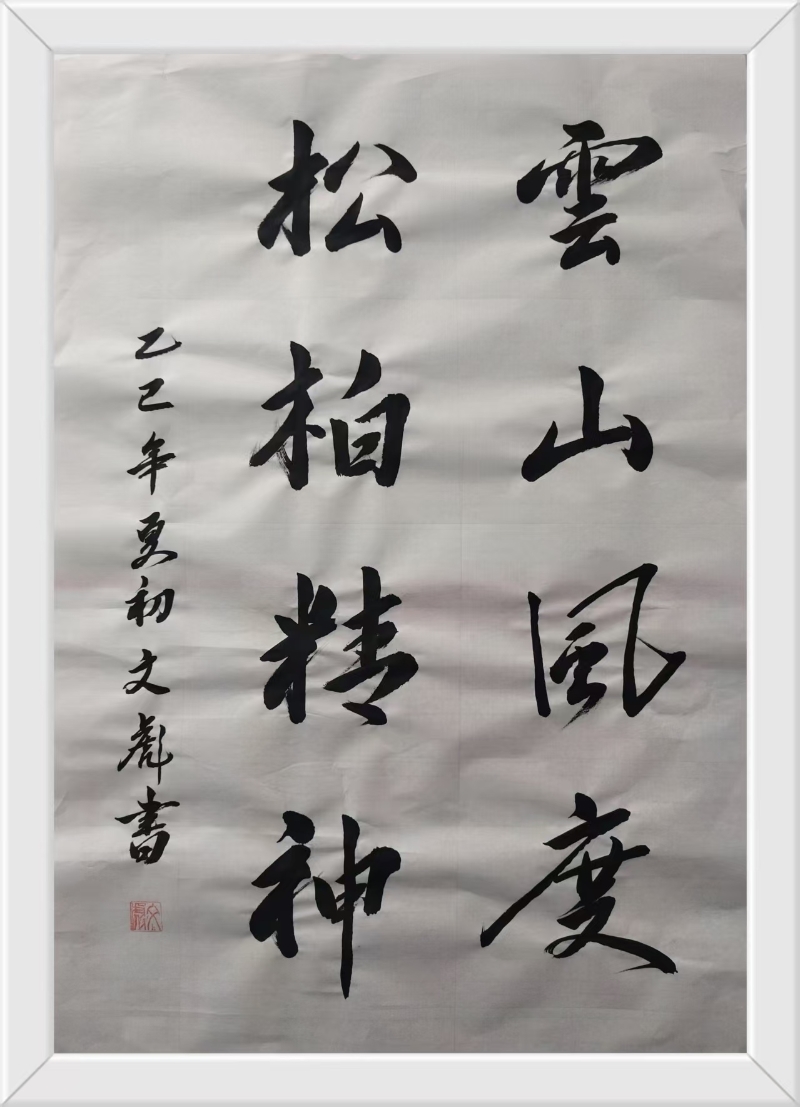 雲山風度
松柏精神
乙巳年夏初文彪書